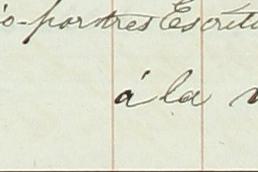 por tres Escritu
á la